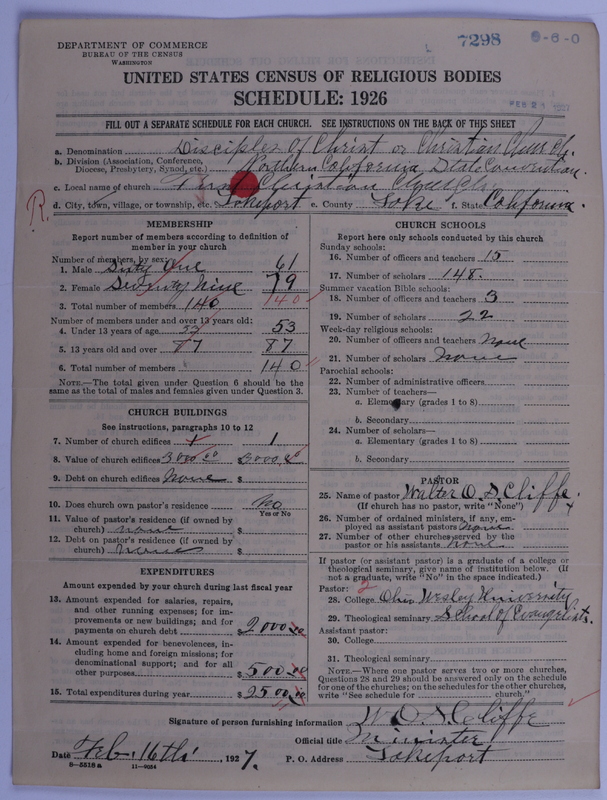 7298
9-6-0
DEPARTMENT OF COMMERCE
BUREAU OF THE CENSUS
WASHINGTON
UNITED STATES CENSUS OF RELIGIOUS BODIES
SCHEDULE: 1926
FEB 21 1927
FILL OUT A SEPARATE SCHEDULE FOR EACH CHURCH. SEE INSTRUCTIONS ON THE BACK OF THIS SHEET
a. Denomination Disciples of Christ or Christian Church.
b. Division (Association, Conference, Diocese, Presbytery, Synod, etc.) Northern California State Convention.
c. Local name of church First Christian Church
d. City, town, village, or township, etc. Lakeport e. County Lake f. State California.
R.
MEMBERSHIP
Report number of members according to definition of
member in your church
Number of members, by sex:
1. Male Sixty One 61
2. Female Seventy Nine 79
3. Total number of members 140 140
Number of members under and over 13 years old:
4. Under 13 years of age 53 53
5. 13 years old and over 87 87
6. Total number of members 140
NOTE.—The total given under Question 6 should be the
same as the total of males and females given under Question 3.
CHURCH BUILDINGS
See instructions, paragraphs 10 to 12
7. Number of church edifices 1 1
8. Value of church edifices 3000 00 $ 3000 00
9. Debt on church edifices None $
10. Does church own pastor's residence No
Yes or No
11. Value of pastor's residence (if owned by
church) none $
12. Debt on pastor's residence (if owned by
church) none $
EXPENDITURES
Amount expended by your church during last fiscal year
13. Amount expended for salaries, repairs,
and other running expenses; for im-
provements or new buildings; and for
payments on church debt $ 2000.00
14. Amount expended for benevolences, in-
cluding home and foreign missions; for
denominational support; and for all
other purposes $ 500.00
15. Total expenditures during year $ 2500.00
CHURCH SCHOOLS
Report here only schools conducted by this church
Sunday schools:
16. Number of officers and teachers 15
17. Number of scholars 148.
Summer vacation Bible schools:
18. Number of officers and teachers 3
19. Number of scholars 22
Week-day religious schools:
20. Number of officers and teachers None
21. Number of scholars None
Parochial schools:
22. Number of administrative officers
23. Number of teachers—
a. Elementary (grades 1 to 8)
b. Secondary
24. Number of scholars—
a. Elementary (grades 1 to 8)
b. Secondary
PASTOR
25. Name of pastor Walter O. S. Cliffe
(If church has no pastor, write "None")
26. Number of ordained ministers, if any, em-
ployed as assistant pastors None
27. Number of other churches served by the
pastor or his assistants None
If pastor (or assistant pastor) is a graduate of a college or
theological seminary, give name of institution below. (If
not a graduate, write "No" in the space indicated.)
Pastor: 2
28. College Ohio Wesley University
29. Theological seminary School of Evangelists.
Assistant pastor:
30. College
31. Theological seminary
NOTE.—Where one pastor serves two or more churches,
Questions 28 and 29 should be answered only on the schedule
for one of the churches; on the schedules for the other churches,
write "See schedule for church."
Signature of person furnishing information W. O. S. Cliffe
Official title Minister
Date Feb. 16th 1927. P. O. Address Lakeport
8—5518 a 11—9054